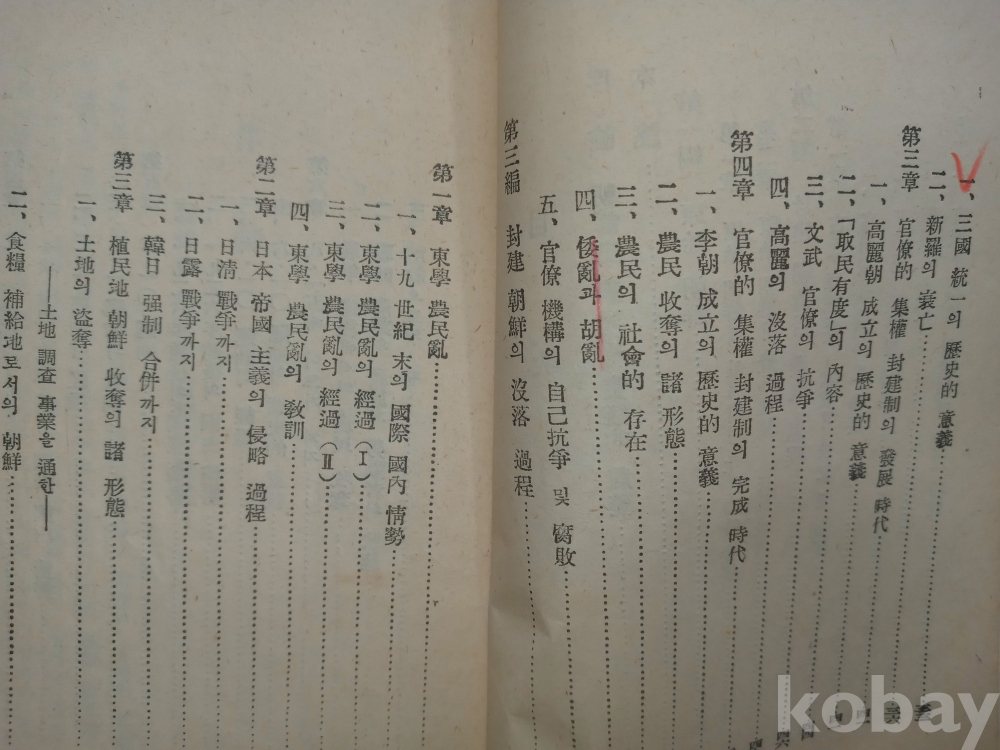 一、三國 統一의 歷史的 意義
二、新羅의 衰亡
第三章 官僚的 集權 封建制의 發展 時代
一、高麗朝 成立의 歷史的 意義
二、「取民有度」의 內容
三、文武 官僚의 抗爭
四、高麗의 沒落 過程
第四章 官僚的 集權 封建制의 完成 時代
一、李朝 成立의 歷史的 意義
二、農民 收奪의 諸 形態
三、農民의 社會的 存在
四、倭亂과 胡亂
五、官僚 機構의 自己抗爭 및 腐敗
第三編 封建 朝鮮의 沒落 過程
第一章 東學 農民亂
一、十九 世紀 末의 國際 國內 情勢
二、東學 農民亂의 經過(I)
三、東學 農民亂의 經過(II)
四、東學 農民亂의 敎訓
第二章 日本 帝國 主義의 侵略 過程
一、日淸 戰爭까지
二、日露 戰爭까지
三、韓日 强制 合併까지
第三章 植民地 朝鮮 收奪의 諸 形態
一、土地의 盜奪
——土地 調査 事業을 通한——
二、食糧 補給地로서의 朝鮮
kobay